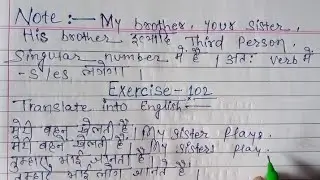 Note :— My brother, your sister,
His brother इत्यादि Third Person,
Singular number में है। अतः verb में
-s/es लगेगा।
Exercise-102
Translate into English:-
मेरी बहन खेलती है। My sister plays.
मेरी बहनें खेलती हैं। My sisters play.
तुम्हारा भाई जानता है।
तुम्हारे भाई लोग जानते हैं।